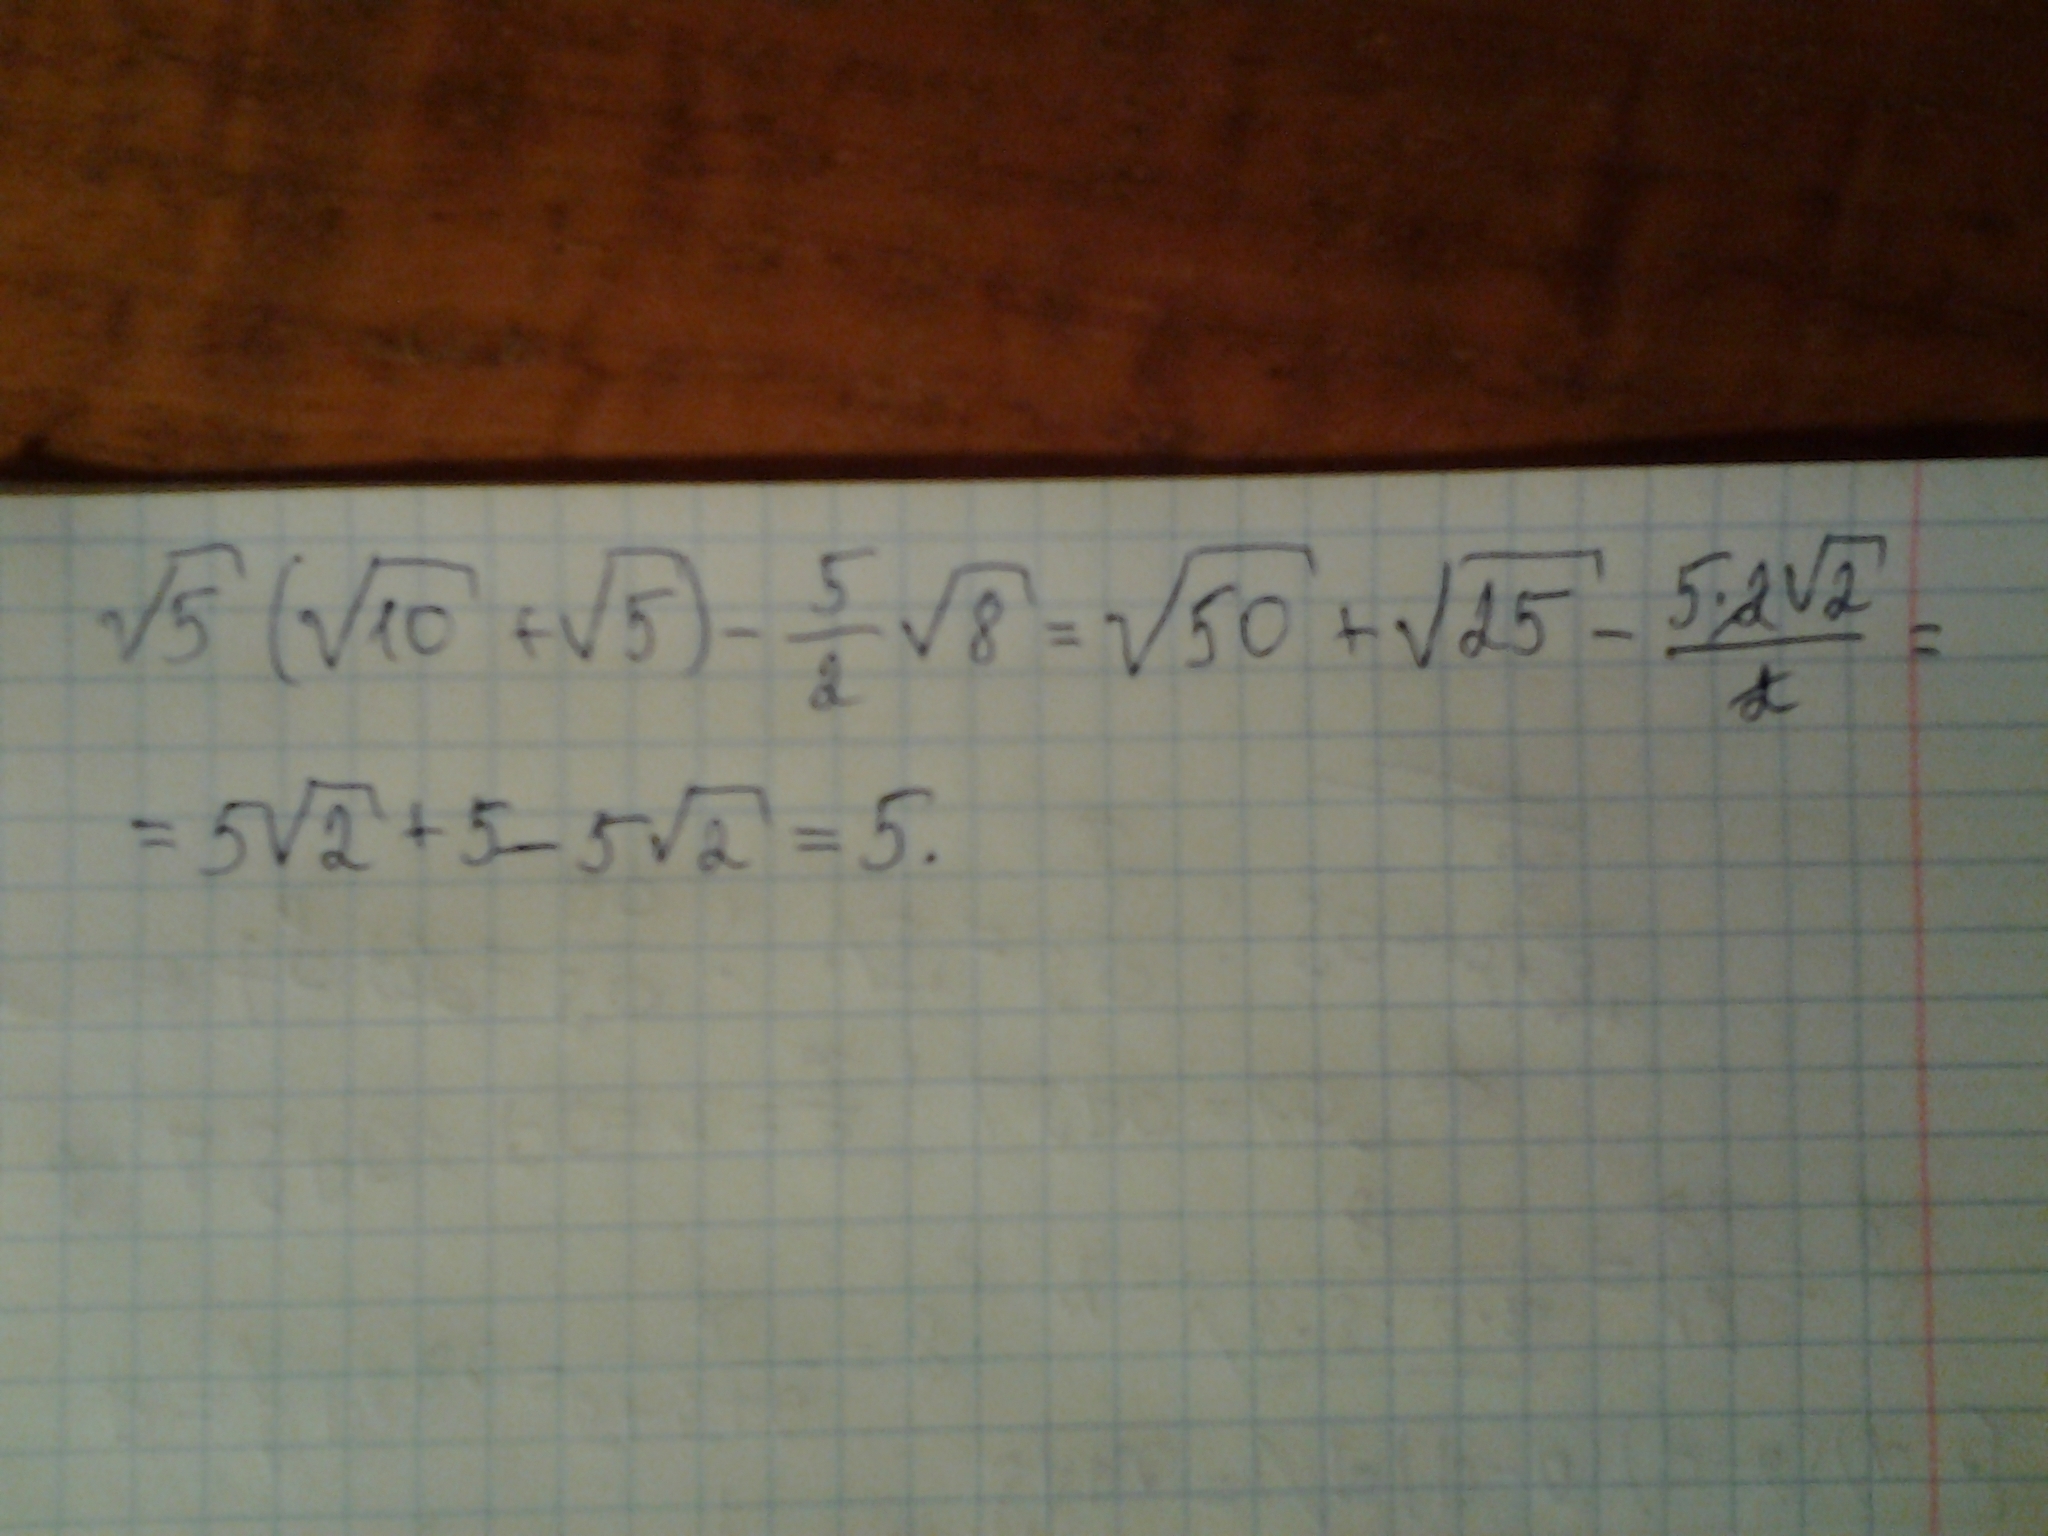 √5 (√10 + √5) - 5/2 √8 = √50 + √25 - 5·2√2/2 =
= 5√2 + 5 - 5√2 = 5.